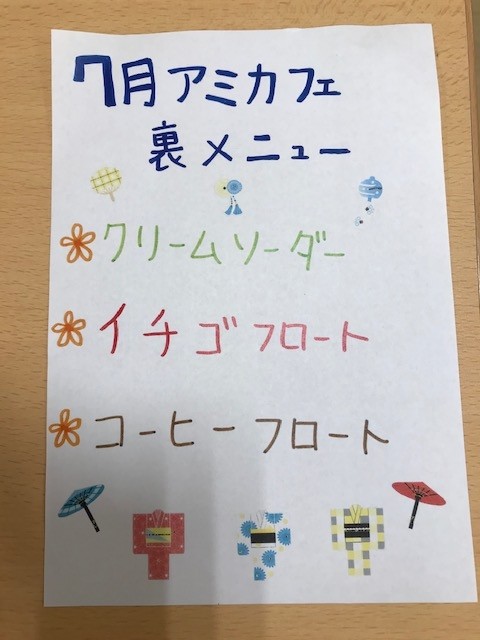 7月アミカフェ
裏メニュー
クリームソーダー
イチゴフロート
コーヒーフロート